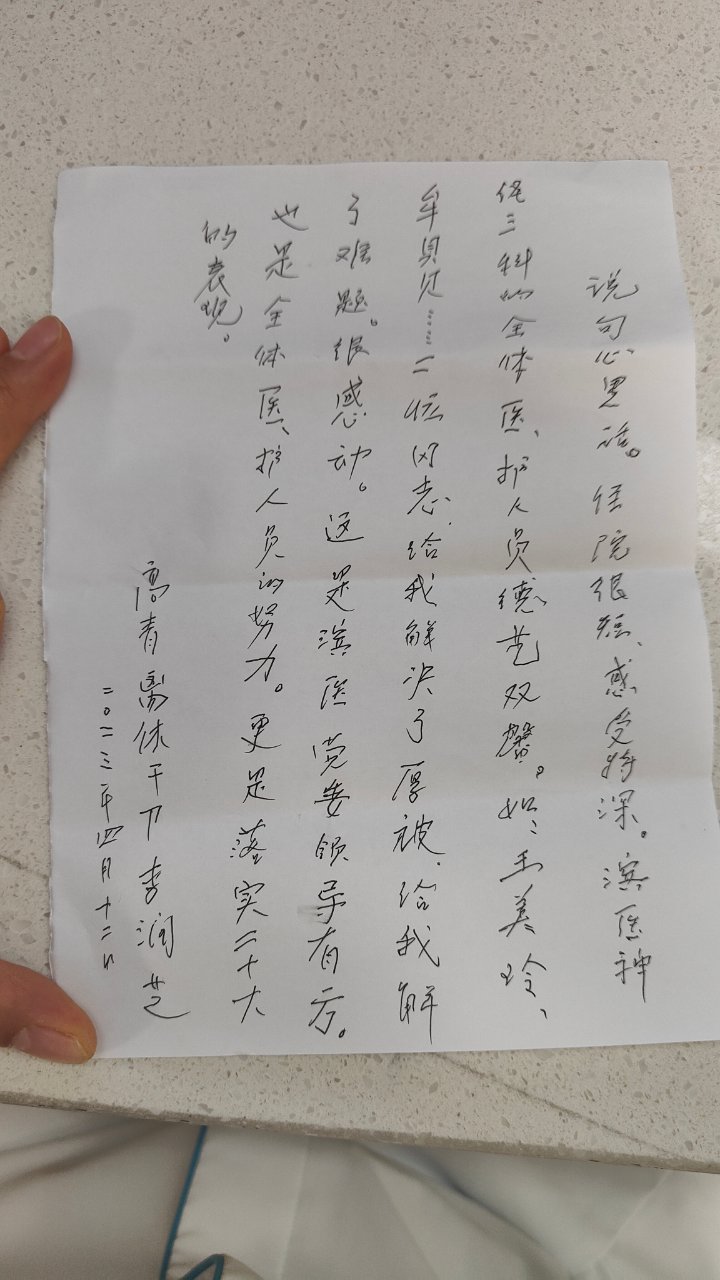 说句心里话。住院很短、感受特深。滨医神
经三科的全体医、护人员德艺双馨。如：王美玲、
牟贝贝……二位同志.给我解决了厚被.给我解
了难题。很感动。这是滨医党委领导有方。
也是全体医、护人员的努力。更是落实二十大
的表现。
高青离休干部李润芝
二〇二三年四月十二日